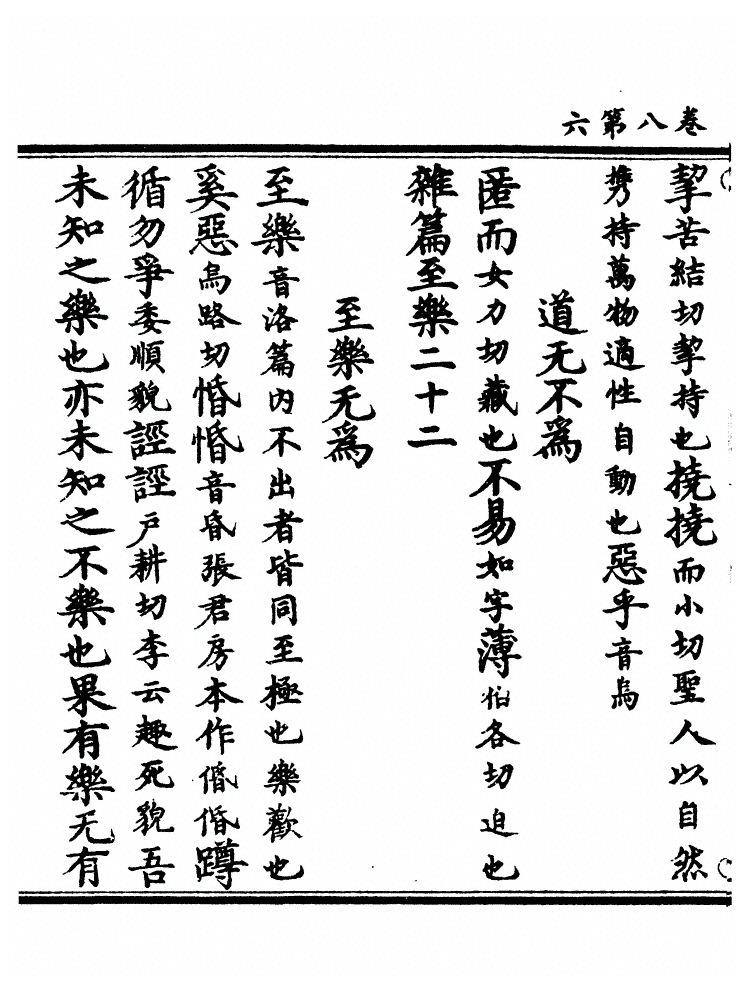 卷八第六
挈苦結切挈持也撓撓而小切聖人以自然
携持萬物適性自動也惡乎音烏
道无不為
匿而女力切藏也不易如字薄伯各切迫也
雜篇至樂二十二
至樂无為
至樂音洛篇內不出者皆同至極也樂歡也
奚惡烏路切惛惛音昏張君房本作惛惛蹲
循勿爭委順貌誙誙戶耕切李云趣死貌吾
未知之樂也亦未知之不樂也果有樂无有